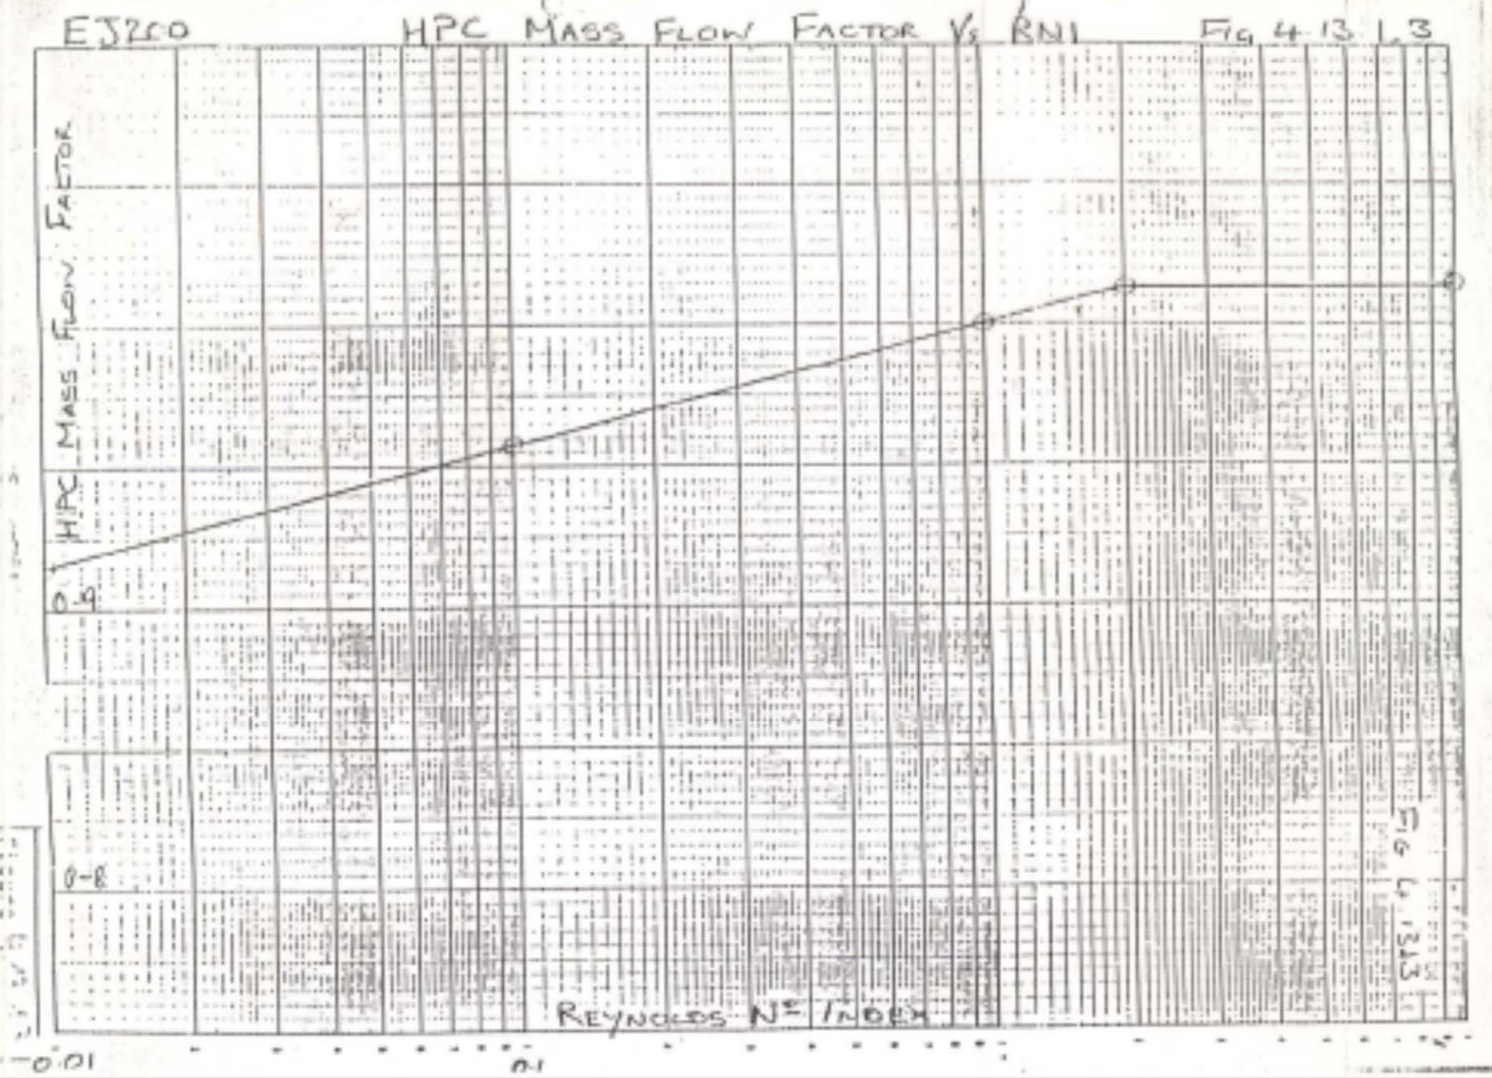 EJ200 HPC MASS FLOW FACTOR Vs RNI Fig 4.13.1.3
HPC MASS FLOW FACTOR
0.9
0.8
FIG 4.13.1.3
REYNOLDS Nº INDEX
0.01 0.1